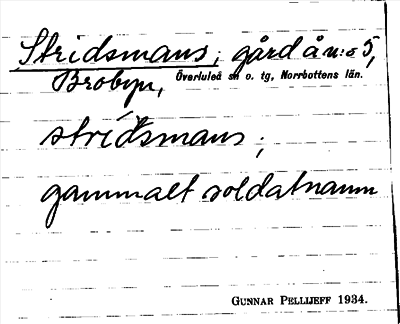 Stridsmans, gård å n:o 5,
Brobyn, Överluleå sn o. tg, Norrbottens län.
strídsmans;
gammalt soldatnamn
GUNNAR PELLIJEFF 1934.